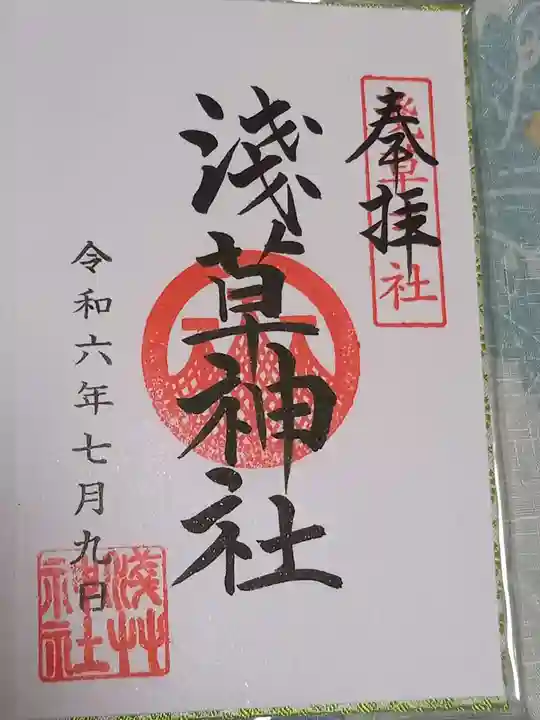 奉拝
浅草神社
令和六年七月九日
浅草
神社